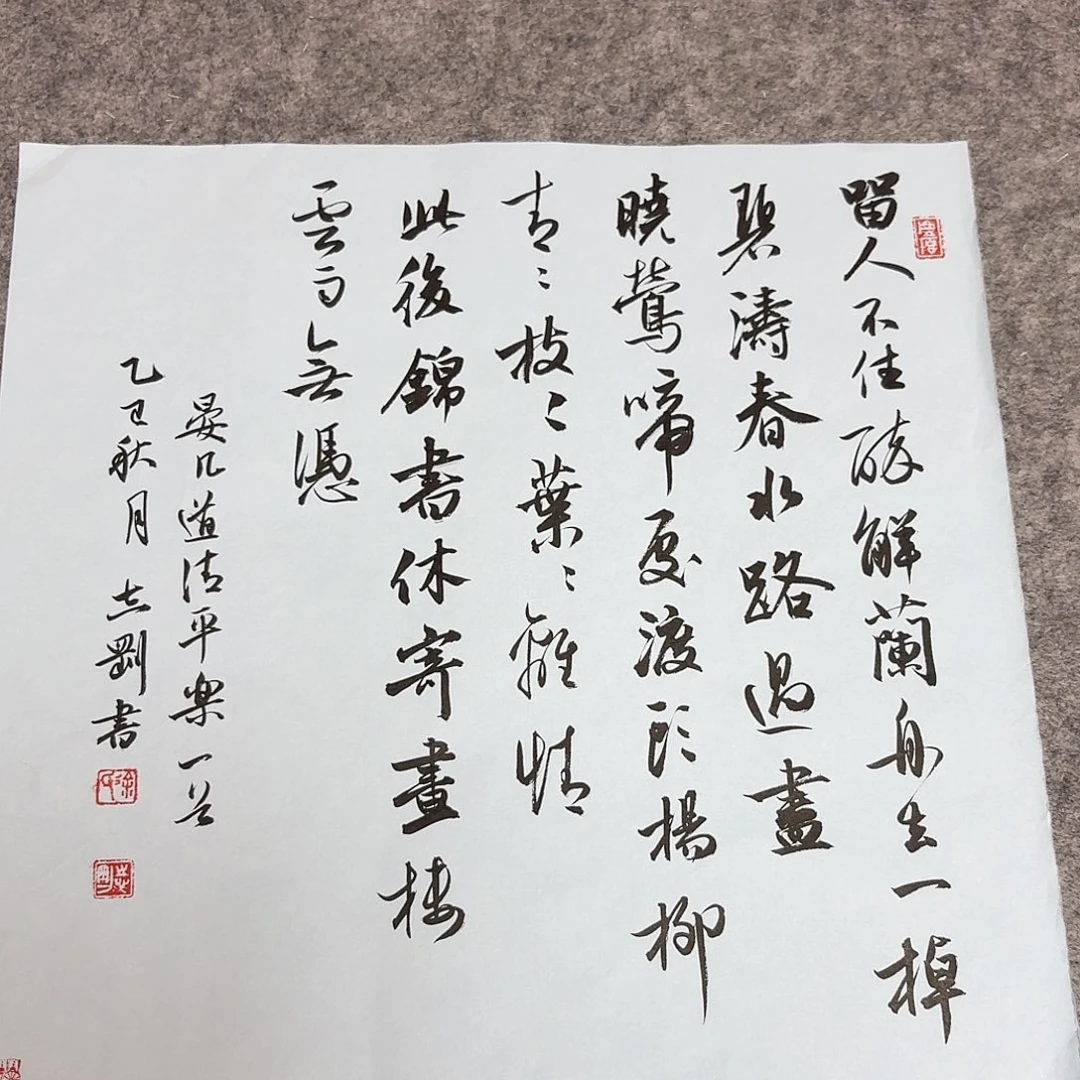 留人不住醉解蘭舟去一棹
碧濤春水路過盡
曉鶯啼處渡頭楊柳
青〻枝〻葉〻離情
此後錦書休寄畫樓
雲雨無憑
晏几道清平樂一首
乙巳秋月志剛書